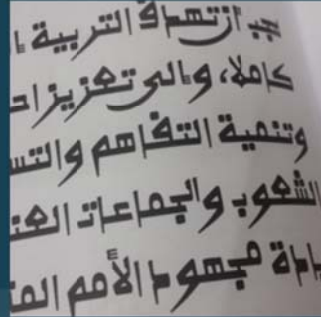 يجب أن تهدف التربية
كاملا، وإلى تعزيز
وتنمية التفاهم والتس
الشعوب والجماعات العنـ
مجهود الأمم المتـ